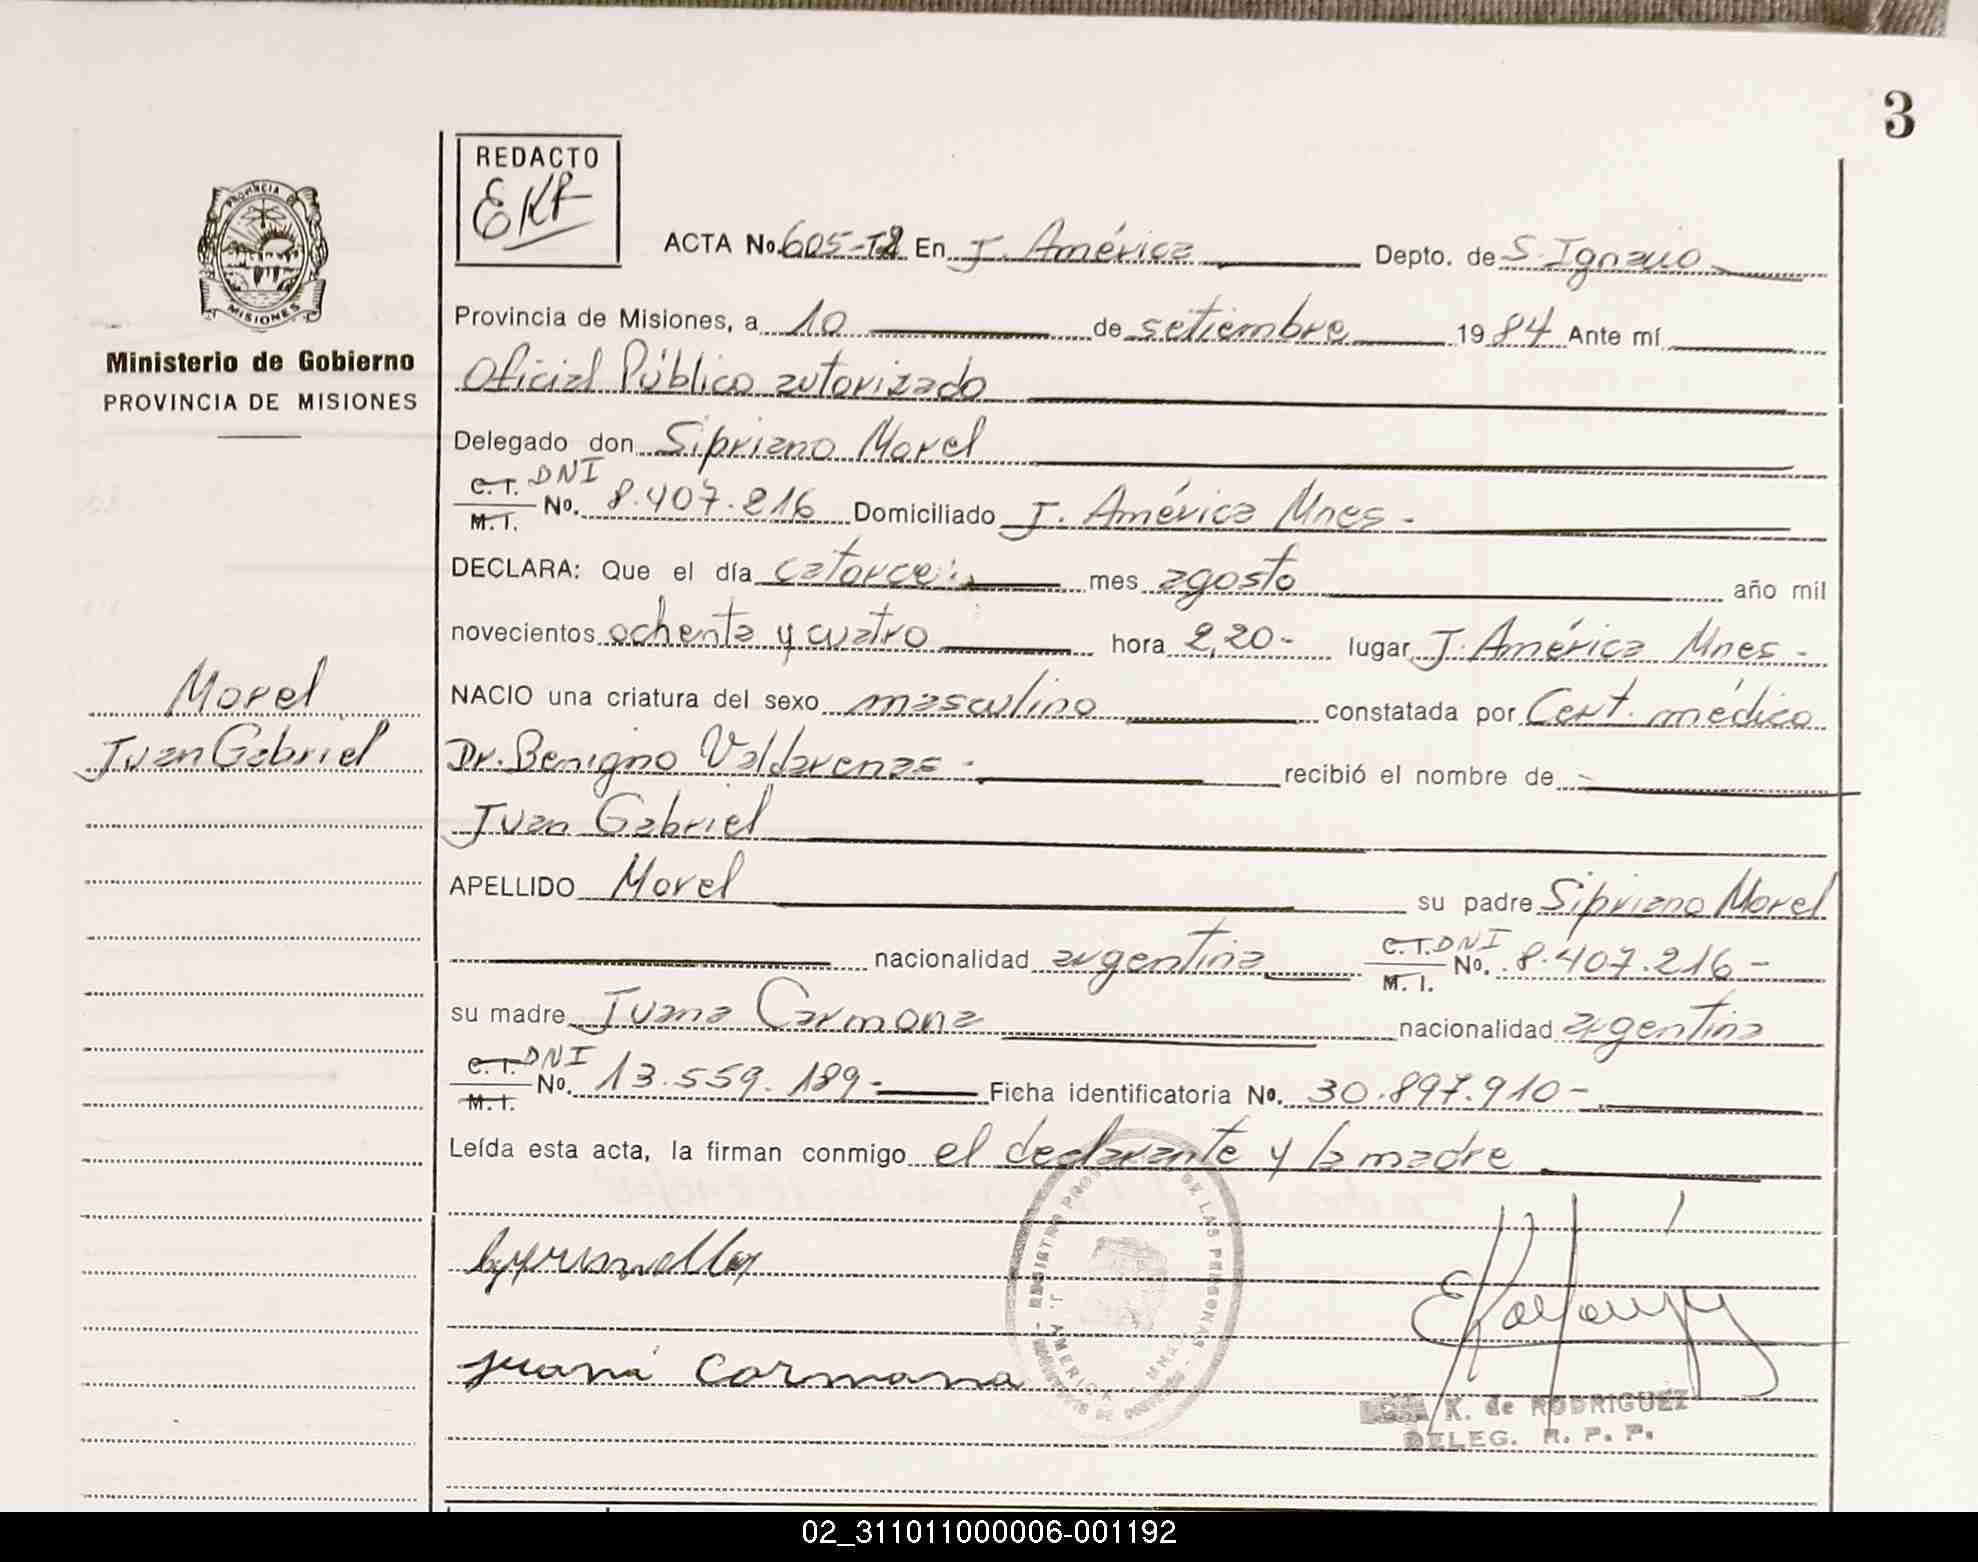 3
REDACTO
EKR
ACTA No. 605-T2 En J. América Depto. de S. Ignacio
PROVINCIA DE MISIONES
Provincia de Misiones, a 10 de setiembre 1984 Ante mí
Ministerio de Gobierno
PROVINCIA DE MISIONES
Oficial Público autorizado
Delegado don Sipriano Morel
C.T. DNI
M.I. No. 8.407.216 Domiciliado J. América Mnes-
DECLARA: Que el día catorce mes agosto año mil
novecientos ochenta y cuatro hora 2,20- lugar J. América Mnes-
Morel
Juan Gabriel
NACIO una criatura del sexo masculino constatada por Cert. médico
Dr. Benigno Valdarenas- recibió el nombre de
Juan Gabriel
APELLIDO Morel su padre Sipriano Morel
nacionalidad argentina C.T. DNI M.I. No. 8.407.216-
su madre Juana Carmona nacionalidad argentina
C.T. DNI
M.I. No. 13.559.189- Ficha identificatoria No. 30.897.910-
Leída esta acta, la firman conmigo el declarante y la madre
REGISTRO DE LAS PERSONAS
J. AMERICA
juana carmona
K. de RODRIGUEZ
DELEG. R. P. P.
02_311011000006-001192